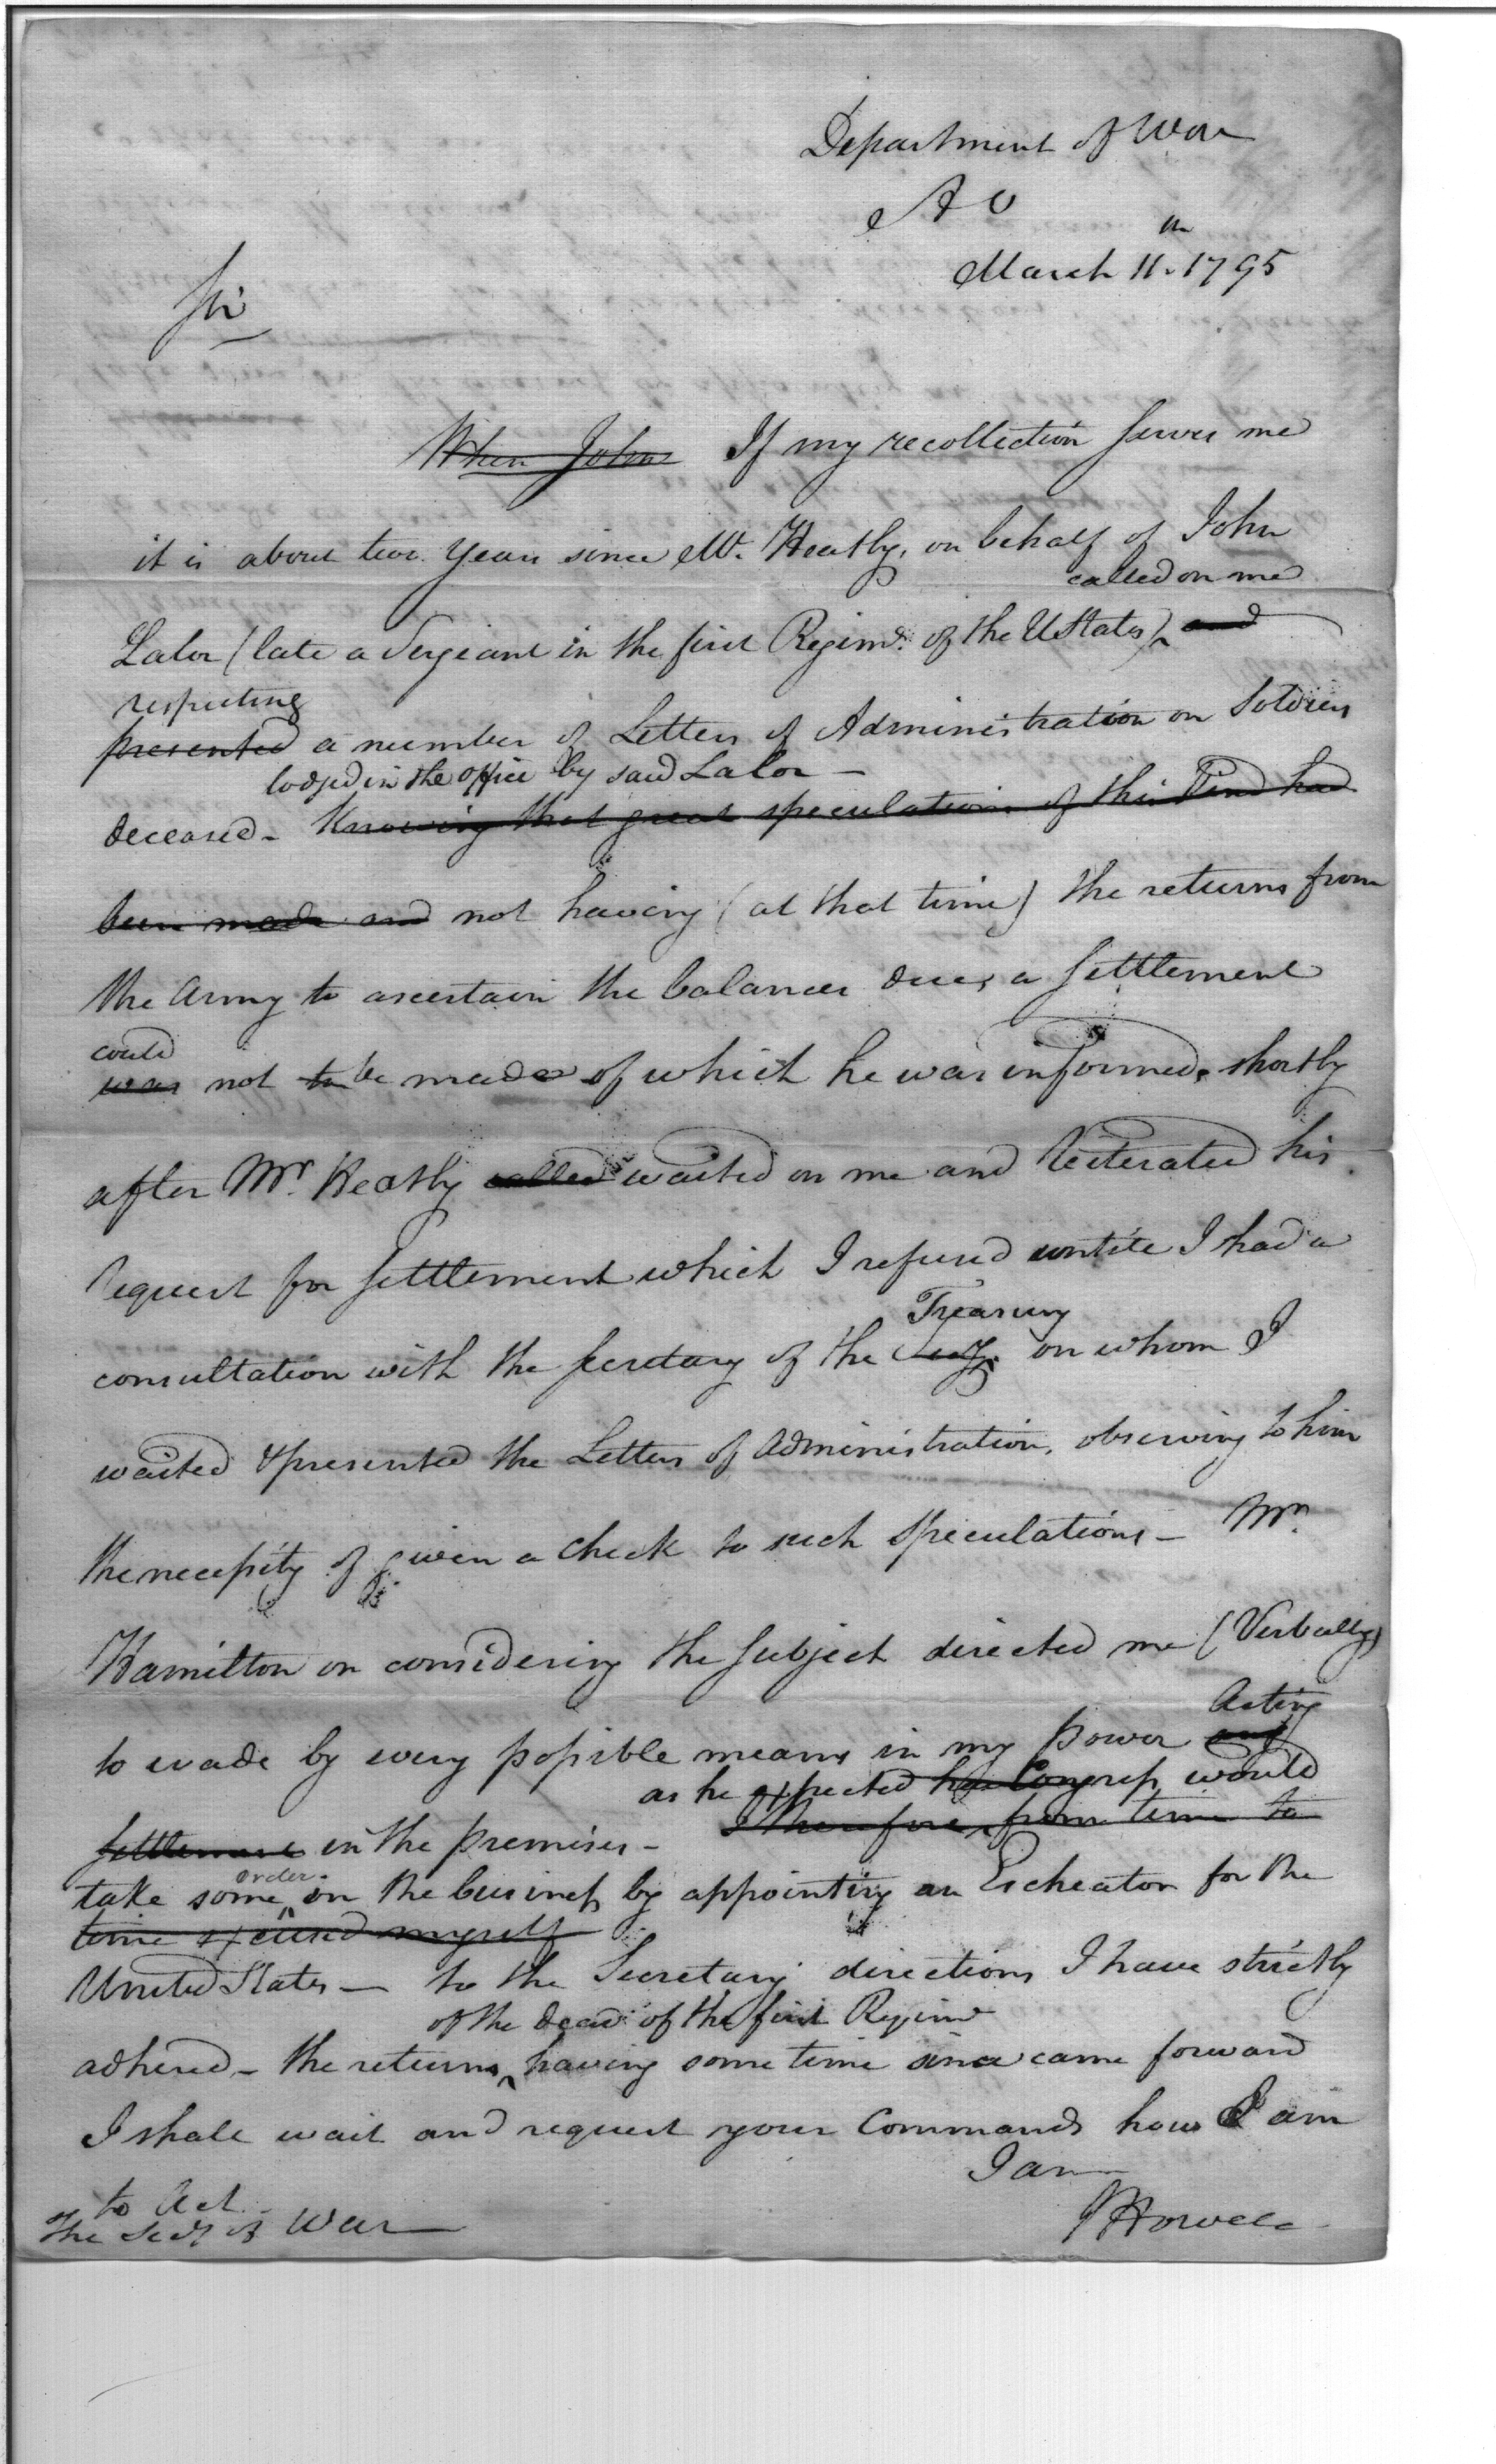 Department of War
A O
March 11th 1795
Sir
When John If my recollection serves me
it is about two years since Mr. Heatly, on behalf of John
called on me
Lalor (late a Sergeant in the first Regimt. of the UStates) and
respecting
presented a number of Letters of Administration on Soldiers
lodged in the office by said Lalor —
deceased - Knowing that great speculations of this kind had
been made and not having (at that time) the returns from
the Army to ascertain the balances due, a settlement
could
was not to be made of which he was informed, shortly
after Mr. Heatly called waited on me and reiterated his
request for settlement which I refused untill I had a
Treasury
consultation with the Secretary of the Secy. on whom I
waited & presented the Letters of Administration, observing to him
the necessity of given a check to such speculations — Mr.
Hamilton on considering the subject directed me (Verbally)
Acting
to evade by every possible means in my power any
as he expected his Congress would
settlement in the premises - I therefore, from time to
order
take some on the business by appointing an Escheator for the
time excused myself
United States — to the Secretary directions I have strictly
of the dead of the first Regimt
adhered - the returns having some time since came forward
I shall wait and request your Commands how I am
I am
to Act -
The Secy of War
JHowell